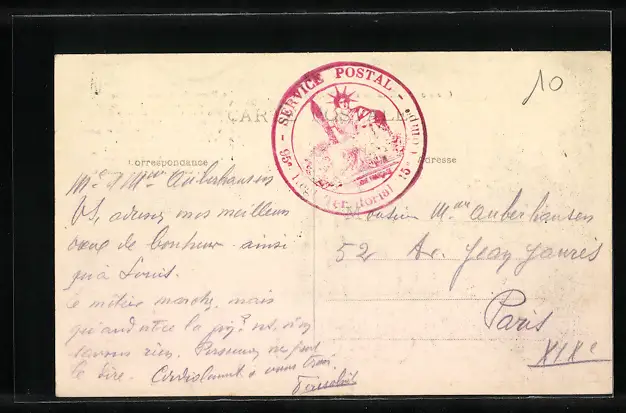 10
SERVICE POSTAL
95e Territorial 15e Comp.
CARTE POSTALE
Correspondance
Adresse
Mr & Mme Auberhausen
adressez nos meilleurs
vœux de bonheur ainsi
qu'à Louis.
Le métier marche, mais
quand
savons rien. Personne ne peut
le dire. Cordialement à vous trois.
Monsieur Mme Auberhausen
52 Av. Jean Jaurès
Paris
XIXe